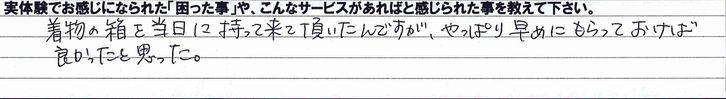 実体験でお感じになられた「困った事」や、こんなサービスがあればと感じられた事を教えて下さい。
着物の箱を当日に持って来て頂いたんですが、やっぱり早めにもらっておけば
良かったと思った。